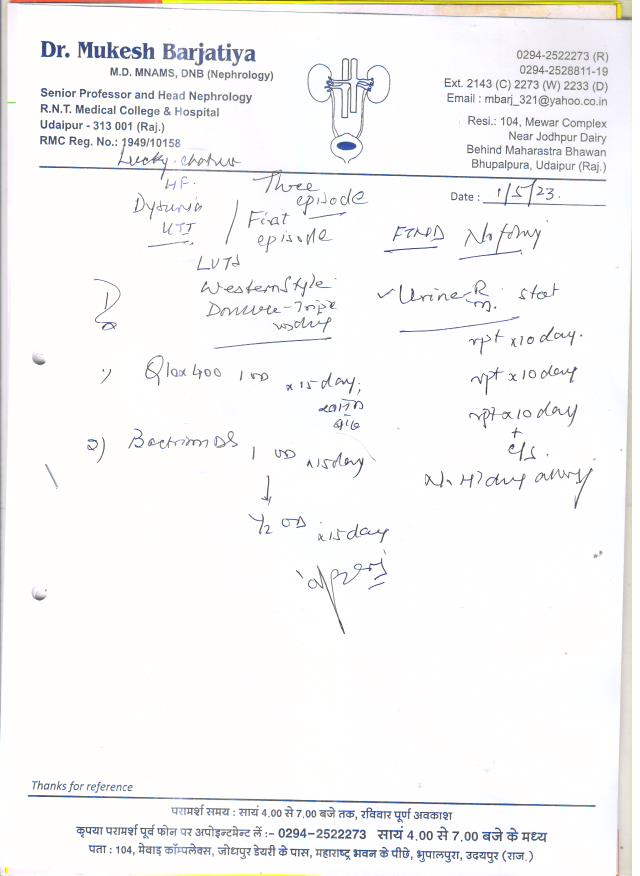 Dr. Mukesh Barjatiya
M.D. MNAMS, DNB (Nephrology)
Senior Professor and Head Nephrology
R.N.T. Medical College & Hospital
Udaipur - 313 001 (Raj.)
RMC Reg. No.: 1949/10158
0294-2522273 (R)
0294-2528811-19
Ext. 2143 (C) 2273 (W) 2233 (D)
Email : mbarj_321@yahoo.co.in
Resi.: 104, Mewar Complex
Near Jodhpur Dairy
Behind Maharastra Bhawan
Bhupalpura, Udaipur (Raj.)
Date : 1/5/23.
Lucky
Dysuria
UTI
Three
episode
First
episode
LUTS
Western Style
Urine R/M. stat
rpt x 10 day.
rpt x 10 day
rpt x 10 day
+
C/S.
1) 400 1 OD x 15 day,
2) Bactrim DS 1 OD x 15 day
↓
1/2 OD x 15 day
Thanks for reference
परामर्श समय : सायं 4.00 से 7.00 बजे तक, रविवार पूर्ण अवकाश
कृपया परामर्श पूर्व फोन पर अपोइन्टमेन्ट लें :- 0294-2522273 सायं 4.00 से 7.00 बजे के मध्य
पता : 104, मेवाड़ कॉम्पलेक्स, जोधपुर डेयरी के पास, महाराष्ट्र भवन के पीछे, भुपालपुरा, उदयपुर (राज.)